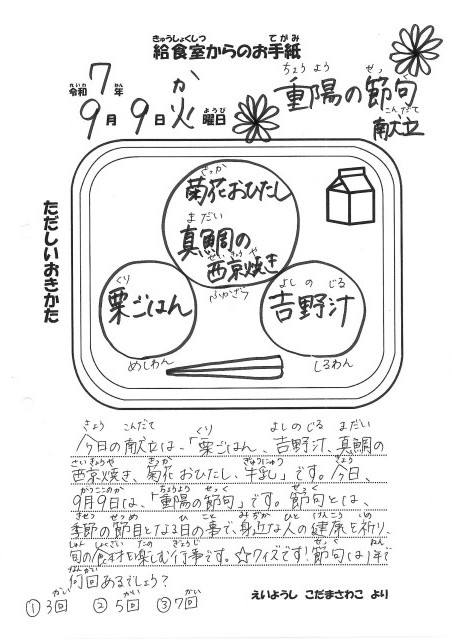 きゅうしょくしつ てがみ
給食室からのお手紙
れいわ ねん か
令和7年
9月9日火曜日
ようび
ちょうよう せっく
重陽の節句
こんだて
献立
ただしいおきかた
きっか
菊花おひたし
まだい
真鯛の
さいきょうや
西京焼き
ふかざら
くり
栗ごはん
めしわん
よしの じる
吉野汁
しるわん
きょう こんだて くり よしのじる まだい
今日の献立は、「栗ごはん、吉野汁、真鯛の
さいきょうや きっか ぎゅうにゅう きょう
西京焼き、菊花おひたし、牛乳」です。今日、
がつここのか ちょうよう せっく せっく
9月9日は、「重陽の節句」です。節句とは、
きせつ せつめ ひ こと みぢか ひと けんこう いの
季節の節目となる日の事で、身近な人の健康を祈り、
しゅん しょくざい たの ぎょうじ せっく ねん
旬の食材を楽しむ行事です。☆クイズです!節句は1年で
なんかい
何回あるでしょう?
かい かい かい
①3回 ②5回 ③7回
えいようし こだまさわこ より